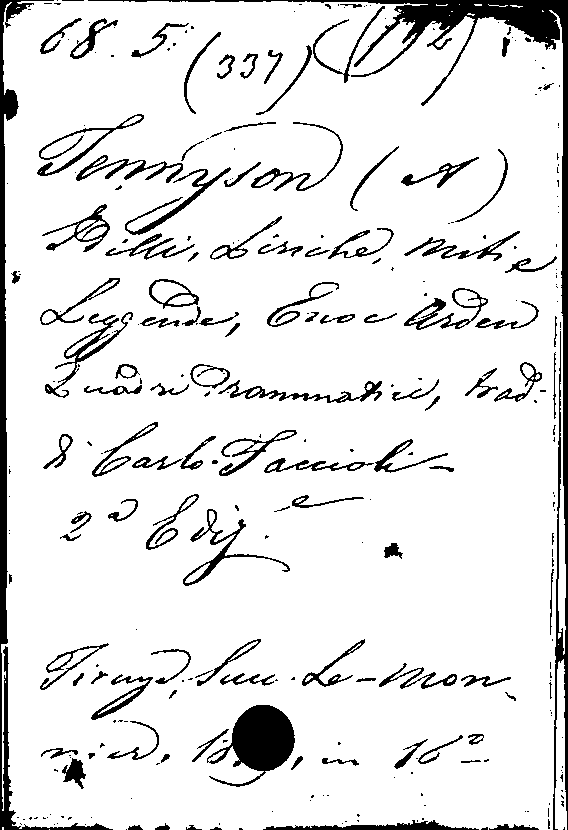 68. 5. (337) (112)
Tennyson (A)
Idilli, Liriche, Miti e
Leggende, Enoc Arden
Quadri Drammatici, trad.
di Carlo Faccioli –
2ª Ediz.e
Firenze, Succ. Le-Mon-
nier, in 16º